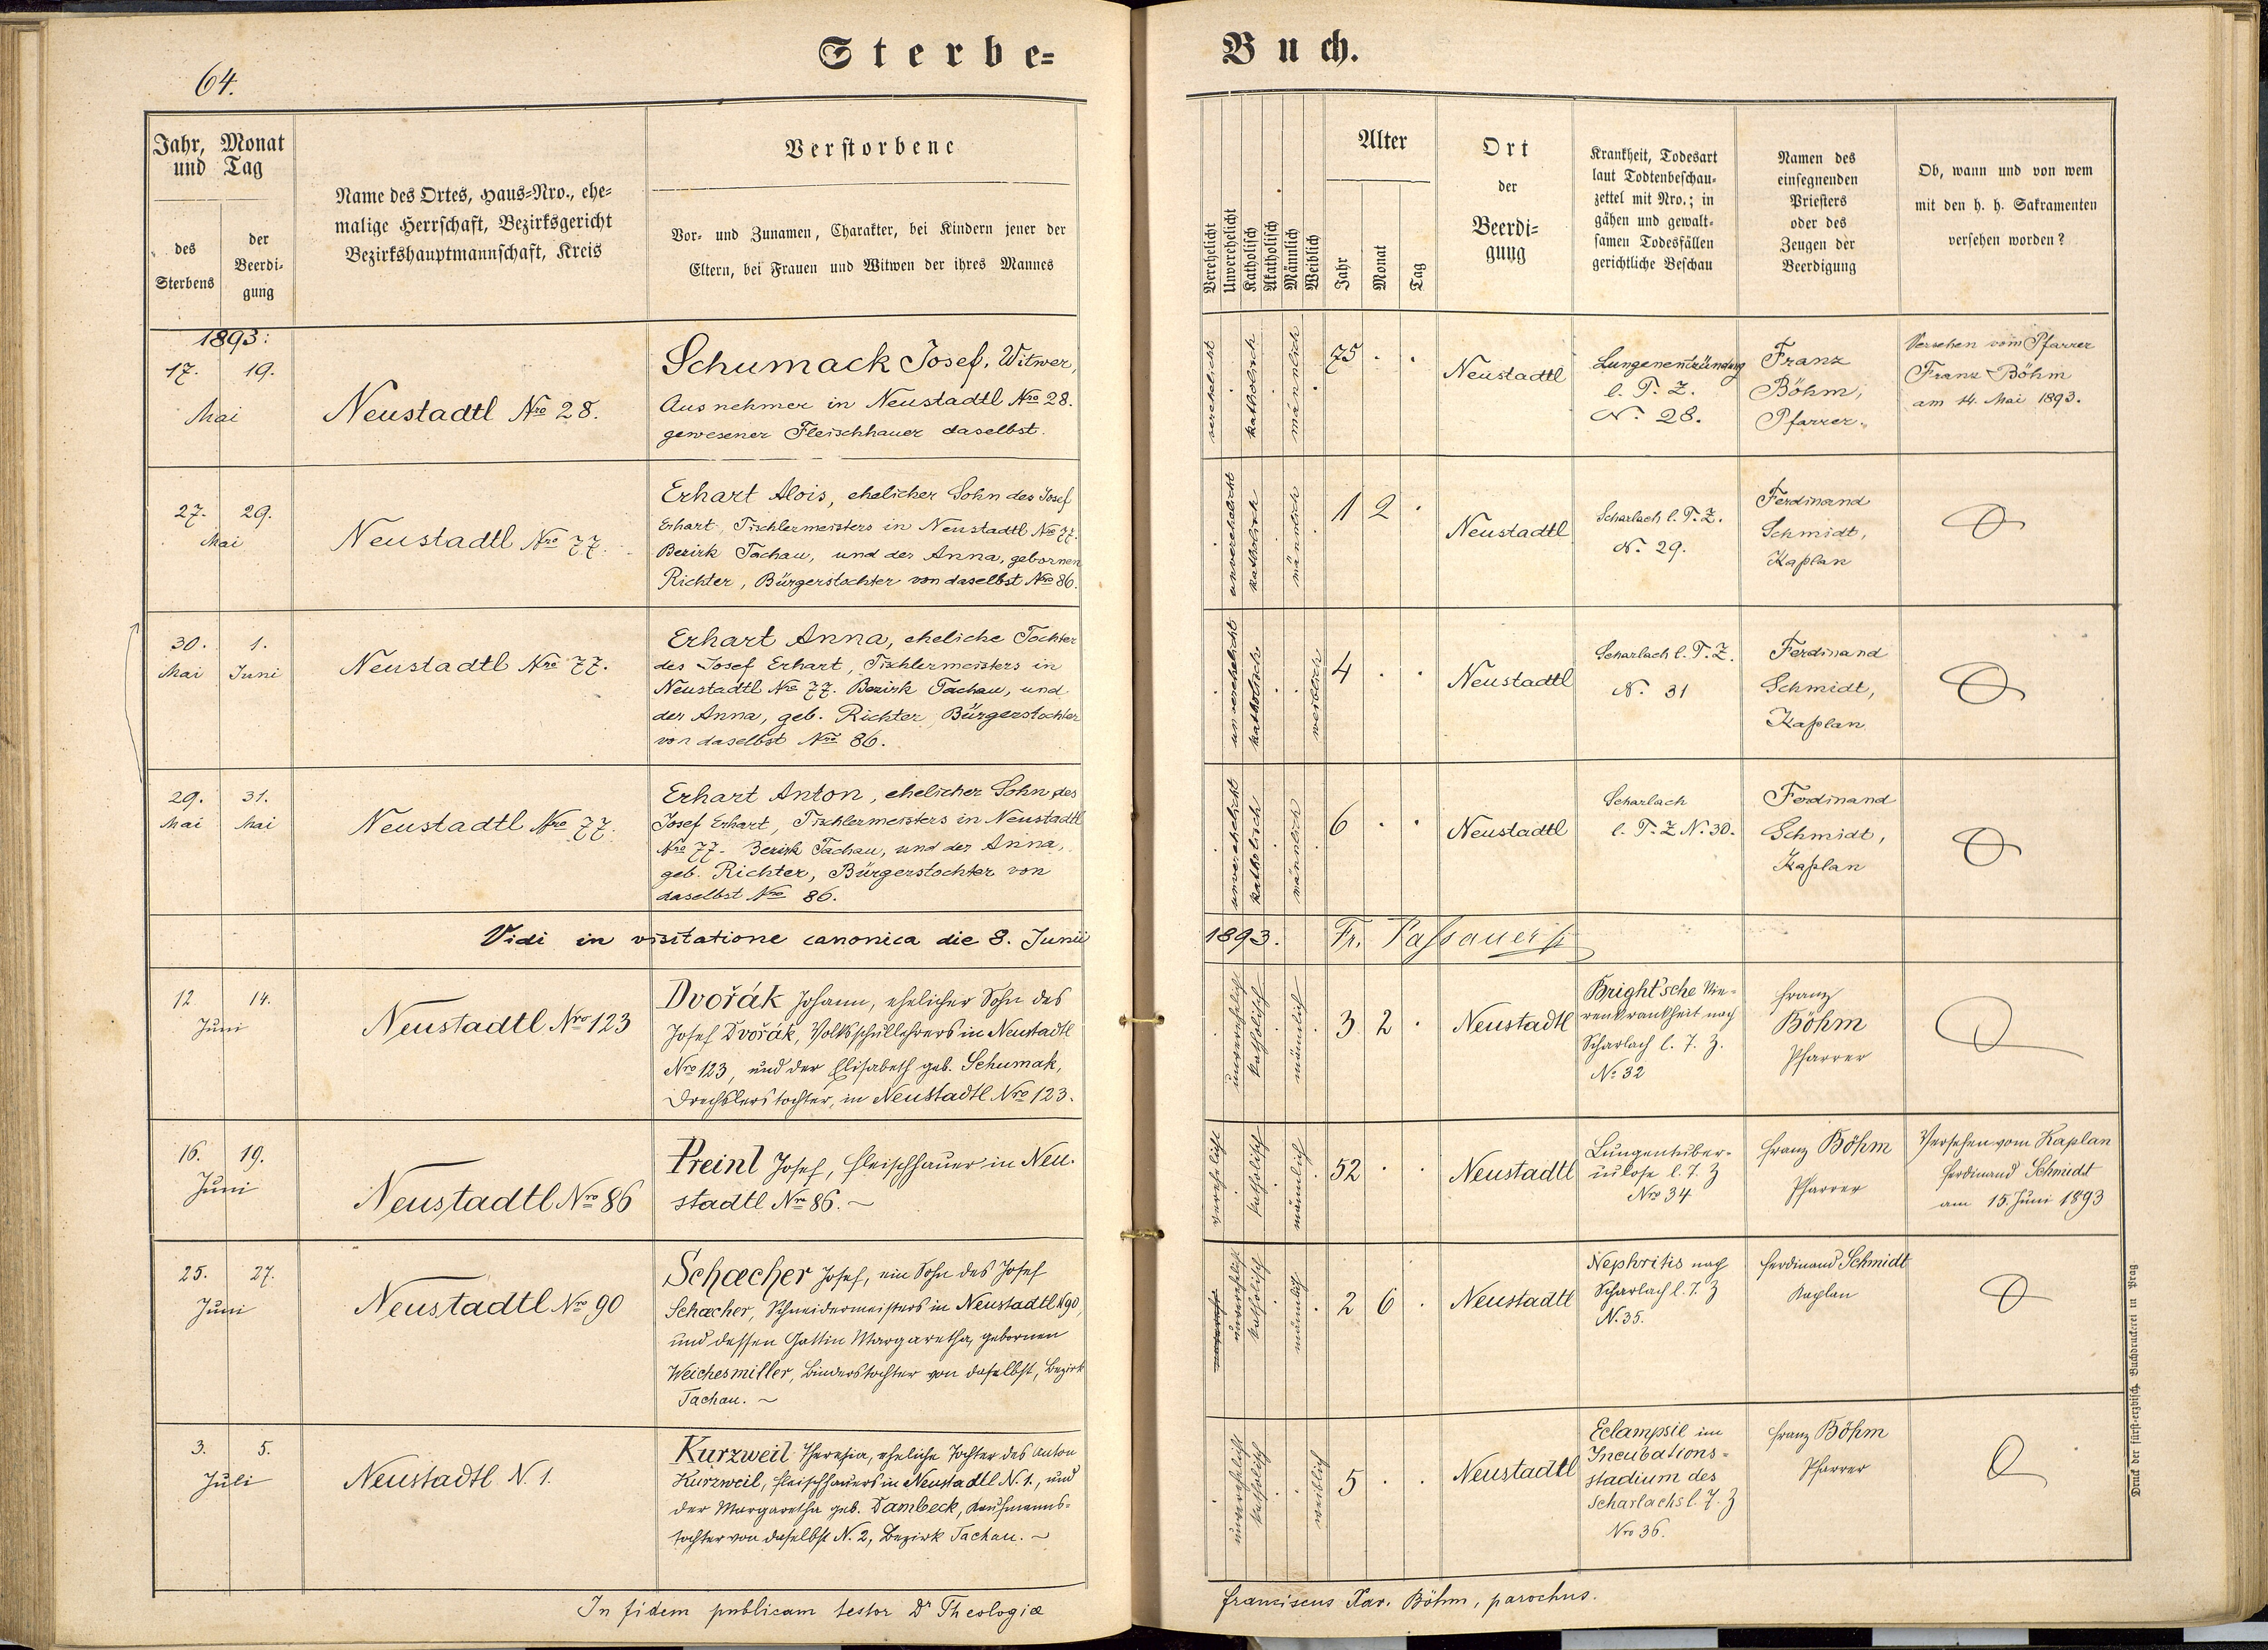 64.
Sterbe-
Buch.
Jahr, Monat
und Tag
des
Sterbens
der
Beerdi-
gung
Name des Ortes, Haus-Nro., ehe-
malige Herrschaft, Bezirksgericht
Bezirkshauptmannschaft, Kreis
Verstorbene
Vor- und Zunamen, Charakter, bei Kindern jener der
Eltern, bei Frauen und Witwen der ihres Mannes
Verehelicht
Unverehelicht
Katholisch
Akatholisch
Männlich
Weiblich
Alter
Jahr
Monat
Tag
Ort
der
Beerdi-
gung
Krankheit, Todesart
laut Todtenbeschau-
zettel mit Nro.; in
gähen und gewalt-
samen Todesfällen
gerichtliche Beschau
Namen des
einsegnenden
Priesters
oder des
Zeugen der
Beerdigung
Ob, wann und von wem
mit den h. h. Sakramenten
versehen worden?
1893:
17. 19.
Mai
Neustadtl Nro 28.
Schumack Josef, Witwer,
Ausnehmer in Neustadtl Nro 28.
gewesener Fleischhauer daselbst.
verehelicht
katholisch
männlich
75 . .
Neustadtl
Lungenentzündung
l. T. Z.
N. 28.
Franz
Böhm,
Pfarrer.
Versehen vom Pfarrer
Franz Böhm
am 14. Mai 1893.
27. 29.
Mai
Neustadtl Nro 77.
Erhart Alois, ehelicher Sohn des Josef
Erhart, Tischlermeisters in Neustadtl Nro 77.
Bezirk Tachau, und der Anna, gebornen
Richter, Bürgerstochter von daselbst Nro 86.
unverehelicht
katholisch
männlich
1 2 .
Neustadtl
Scharlach l. T. Z.
N. 29.
Ferdinand
Schmidt,
Kaplan
30. 1.
Mai Juni
Neustadtl Nro 77.
Erhart Anna, eheliche Tochter
des Josef Erhart, Tischlermeisters in
Neustadtl Nro 77. Bezirk Tachau, und
der Anna, geb. Richter, Bürgerstochter
von daselbst Nro 86.
unverehelicht
katholisch
weiblich
4 . .
Neustadtl
Scharlach l. T. Z.
N. 31
Ferdinand
Schmidt,
Kaplan
29. 31.
Mai Mai
Neustadtl Nro 77.
Erhart Anton, ehelicher Sohn des
Josef Erhart, Tischlermeisters in Neustadtl
Nro 77. Bezirk Tachau, und der Anna,
geb. Richter, Bürgerstochter von
daselbst Nro 86.
unverehelicht
katholisch
männlich
6 . .
Neustadtl
Scharlach
l. T. Z N. 30.
Ferdinand
Schmidt,
Kaplan
Vidi in visitatione canonica die 8. Junii
1893. Fr. Passauer
12 14.
Juni
Neustadtl Nro 123
Dvořák Johann, ehelicher Sohn des
Josef Dvořák, Volksschullehrers in Neustadtl
Nro 123, und der Elisabeth geb. Schumak,
Drechslerstochter, in Neustadtl Nro 123.
unverehelicht
katholisch
männlich
3 2 .
Neustadtl
Bright'sche Nie-
renkrankheit nach
Scharlach l. T. Z.
No 32
Franz
Böhm
Pfarrer
16. 19.
Juni
Neustadtl Nro 86
Preinl Josef, Fleischhauer in Neu-
stadtl Nro 86. ~
verehelicht
katholisch
männlich
52 . .
Neustadtl
Lungentuber-
culose l. T. Z
Nro 34
Franz Böhm
Pfarrer
Versehen vom Kaplan
Ferdinand Schmidt
am 15. Juni 1893
25. 27.
Juni
Neustadtl Nro 90
Schacher Josef, ein Sohn des Josef
Schacher, Schneidermeisters in Neustadtl N 90,
und dessen Gattin Margaretha, gebornen
Weichesmiller, Binderstochter von daselbst, Bezirk
Tachau. ~
unverehelicht
katholisch
männlich
2 6 .
Neustadtl
Nephritis nach
Scharlach l. T. Z
N. 35.
Ferdinand Schmidt
Kaplan
3. 5.
Juli
Neustadtl N. 1.
Kurzweil Theresia, eheliche Tochter des Anton
Kurzweil, Fleischhauers in Neustadtl N. 1., und
der Margaretha geb. Dambeck, Kaufmanns-
tochter von daselbst N. 2, Bezirk Tachau. ~
unverehelicht
katholisch
weiblich
5 . .
Neustadtl
Eclampsie im
Incubations-
stadium des
Scharlachs l. T. Z
Nro 36.
Franz Böhm
Pfarrer
In fidem publicam testor Dr Theologiæ
Franciscus Xav. Böhm, parochus.
Druck der fürst-erzbisch. Buchdruckerei in Prag